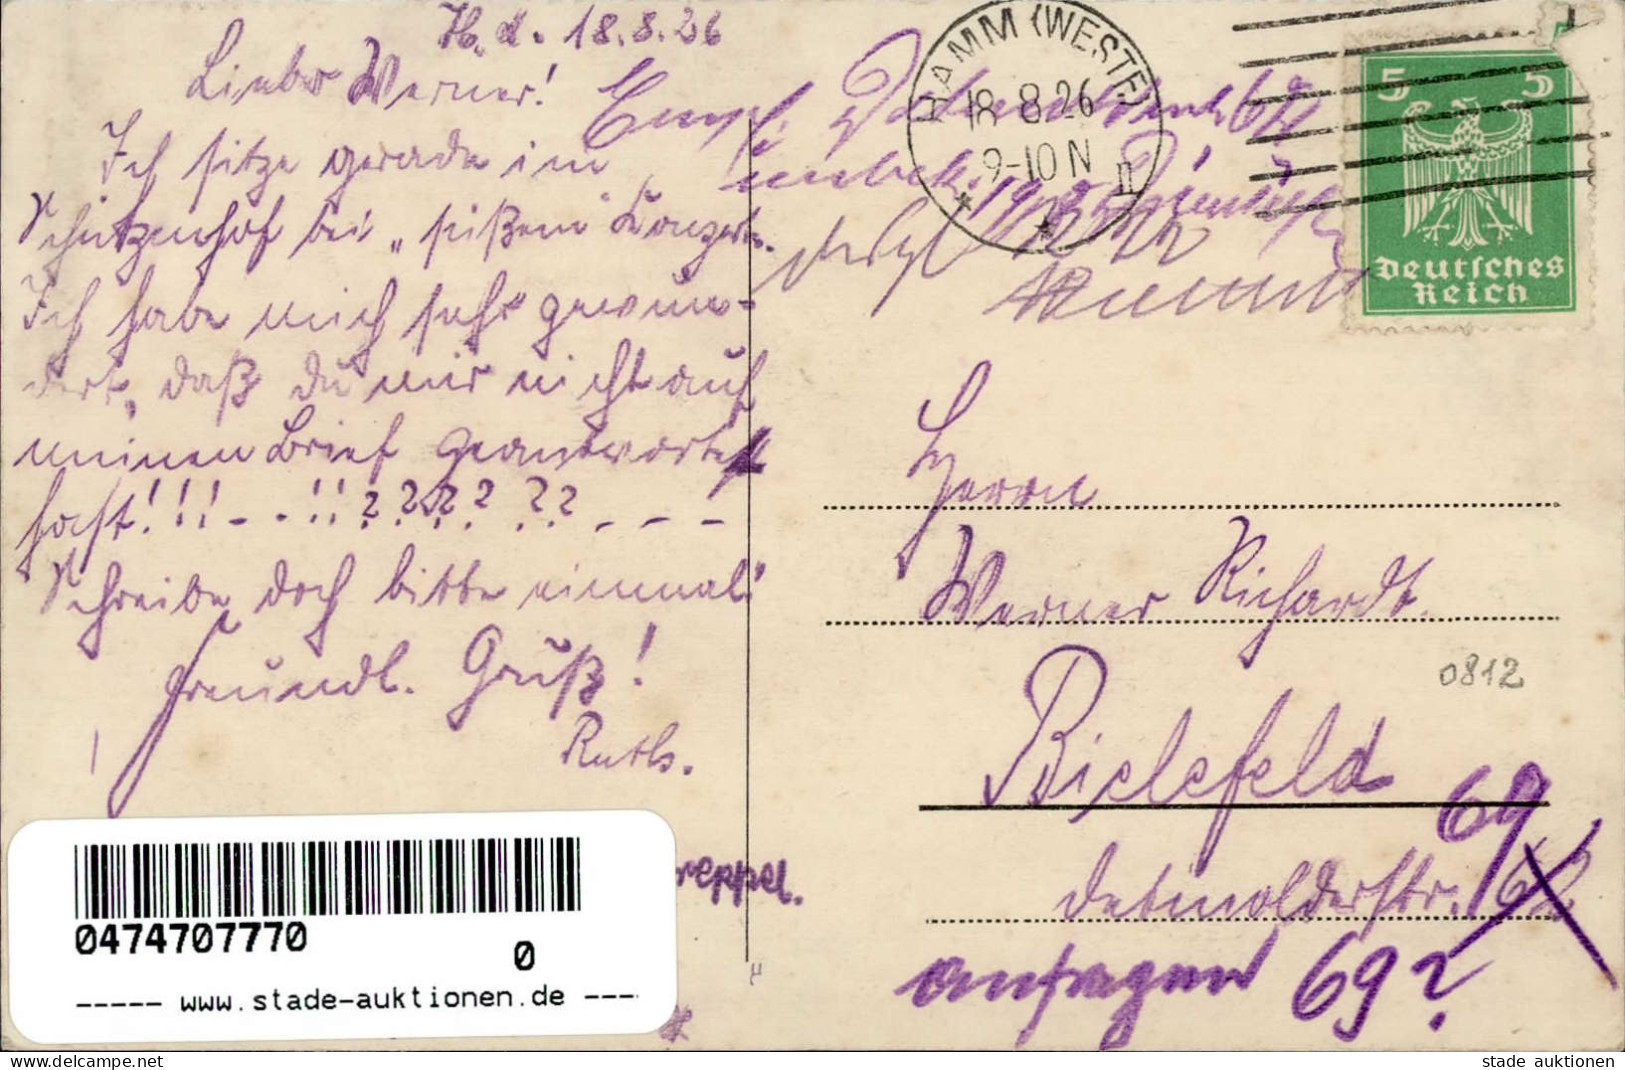 H. d. 18.8.26
Lieber Werner!
Ich sitze gerade im
Schützenhof bei „süßem“ Konzert.
Ich habe mich sehr gewun-
dert, daß du mir nicht auf
meinen Brief geantwortet
hast!!! - - !! ???? ?? - - -
Schreibe doch bitte einmal!
Freundl. Gruß!
Ruth.
HAMM (WESTF)
18.8.26
9-10 N
Empf. 62
unbek. 19/8
5 5
Deutsches
Reich
Herrn
Werner Richardt.
Bielefeld
0812
69
Detmolderstr. 62
anfragen 69?
reppel.
0474707770
0
----- www.stade-auktionen.de ---
www.delcampe.net
stade auktionen